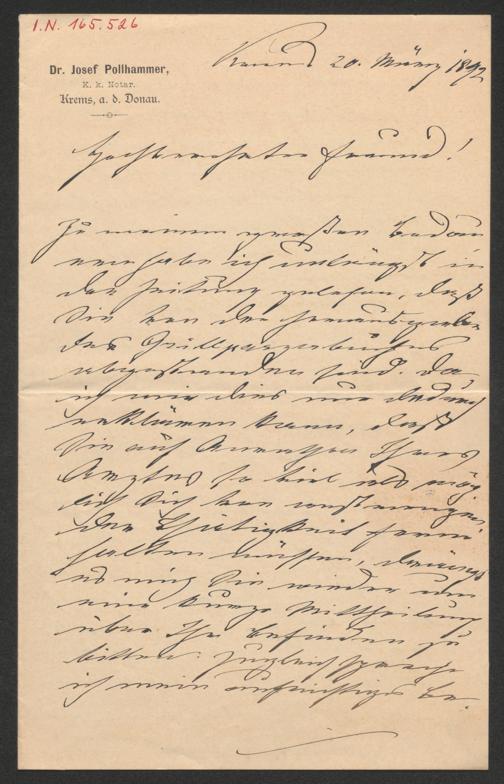 I.N. 165.526
Dr. Josef Pollhammer,
K. k. Notar.
Krems, a. d. Donau.
Krems 20. März 1892
Hochverehrter Freund!
Zu meinem großen Bedau-
ern habe ich unlängst in
der Zeitung gelesen, daß
Sie von der Herausgabe
des Grillparzerbuches
abgestanden sind. Da
ich mir dies nur dadurch
erklären kann, daß
Sie auf Anrathen Ihres
Arztes so viel als mög-
lich sich von anstrengen-
der Thätigkeit fern
halten müssen, drängt
es mich Sie wieder um
eine kurze Mittheilung
über Ihr Befinden zu
bitten. Zugleich spreche
ich mein aufrichtiges Be-